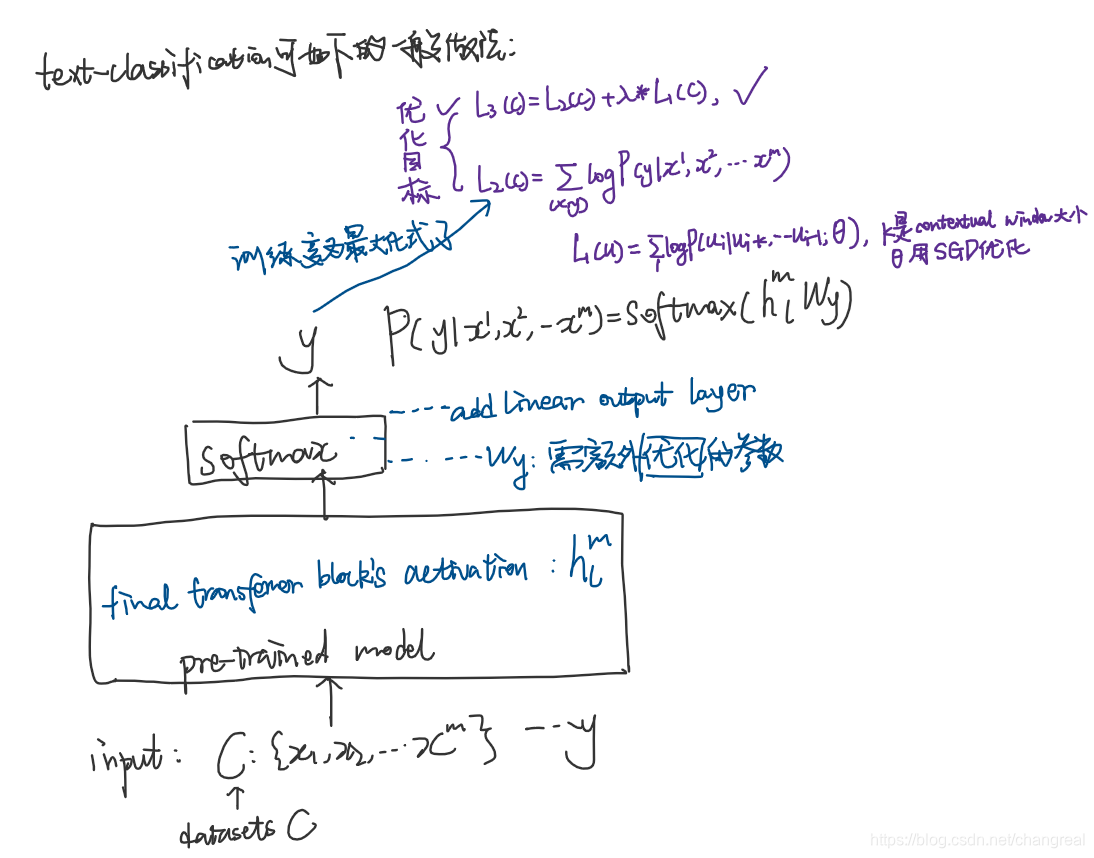 text-classification可如下的一般做法:
优化目标
✓ L₃(C)=L₂(C)+λ*L₁(C), ✓
L₂(C)= ∑_(x,y) logP(y|x¹,x²,…xᵐ)
L₁(u)=∑_i logP(u_i|u_i-k,…u_i-1;θ), k是contextual window大小
θ用SGD优化
训练变为最大化式子
y P(y|x¹,x²,-xᵐ)=softmax(h_l^m Wy)
add linear output layer
softmax
Wy: 需额外优化的参数
final transfomer block's activation : h_l^m
pre-trained model
input: C:{x₁,x₂,…xᵐ} --- y
datasets C
https://blog.csdn.net/changreal